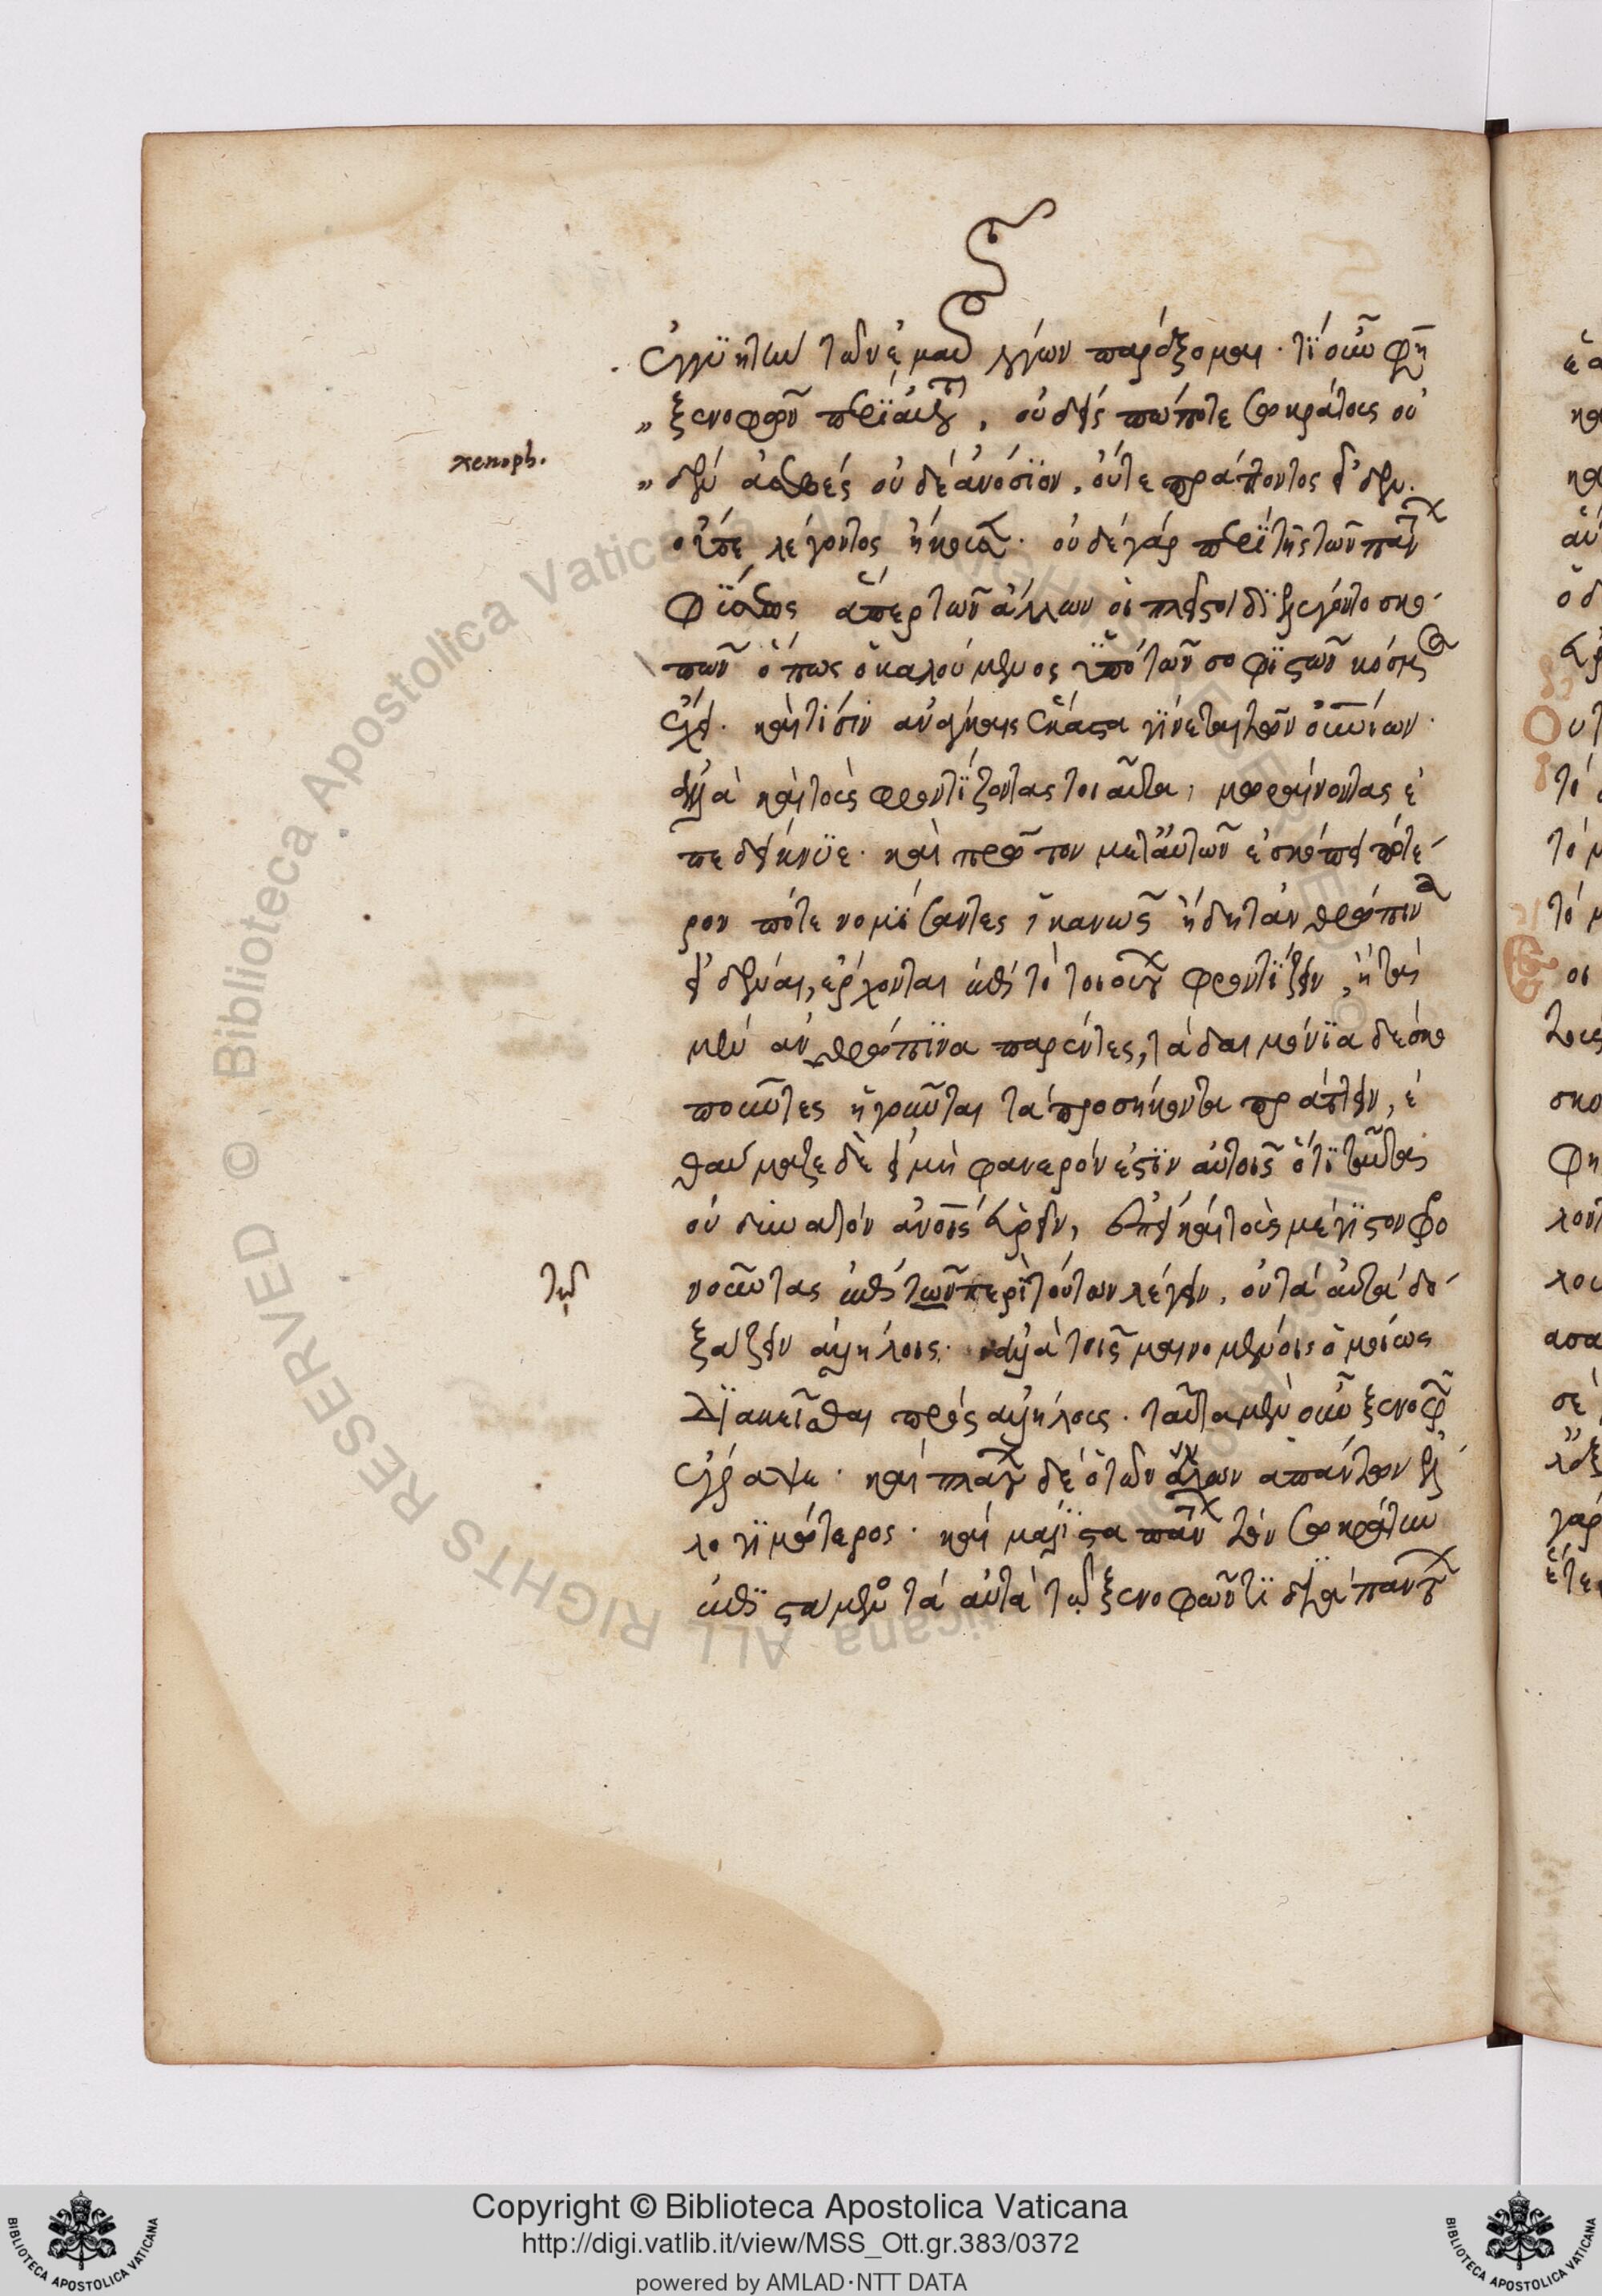 ἐγγυητὴν τῶν ἐμῶν λόγων παρέξομαι. τί οὖν φησι
ξενοφῶν περὶ αὐτοῦ, οὐδεὶς πώποτε σωκράτους οὐ
xenoph.
δὲν ἀσεβὲς οὐδὲ ἀνόσιον, οὔτε πράττοντος εἶδεν.
οὔτε λέγοντος ἤκουσεν. οὐδὲ γὰρ περὶ τῆς τῶν πάντων
φύσεως ἅπερ τῶν ἄλλων οἱ πλεῖστοι διελέγοντο σκο
πῶν ὅπως ὁ καλούμενος ὑπὸ τῶν σοφιστῶν κόσμος
ἔχει. καὶ τίσιν ἀνάγκαις ἕκαστα γίνεται τῶν οὐρανίων.
ἀλλὰ καὶ τοὺς φροντίζοντας τοιαῦτα, μωραίνοντας ἐ
πεδείκνυε. καὶ πρῶτον μὲν αὐτῶν ἐσκόπει πότε
ρον πότε νομίσαντες ἱκανῶς ἤδη τἀνθρώπινα
εἰδέναι, ἔρχονται ἐπὶ τὸ τοιούτων φροντίζειν, ἢ τὰ
μὲν ἀνθρώπινα παρέντες, τὰ δαιμόνια δὲ σκο
ποῦντες ἡγοῦνται τὰ προσήκοντα πράττειν, ἐ
θαύμαζε δὲ εἰ μὴ φανερόν ἐστιν αὐτοῖς ὅτι ταῦτα
οὐ δυνατὸν ἀνοις εὑρεῖν, ἐπεὶ καὶ τοὺς μέγιστον φρο
τῷ
νοῦντας ἐπὶ τῶν περὶ τούτων λέγειν, οὐ τὰ αὐτὰ δο
ξάζειν ἀλλήλοις. ἀλλὰ τοῖς μαινομένοις ὁμοίως
διακεῖσθαι πρὸς ἀλλήλους. ταῦτα μὲν οὖν ξενοφῶν
ἔγραψε. καὶ πλάτων δὲ ὁ τῶν ἄλλων ἁπάντων ἐλ
λογιμώτερος. καὶ μάλιστα πάντων τὸν σωκράτην
ἐπιστάμενος τὰ αὐτὰ τῷ ξενοφῶντι διὰ πάντων
Copyright © Biblioteca Apostolica Vaticana
http://digi.vatlib.it/view/MSS_Ott.gr.383/0372
powered by AMLAD·NTT DATA